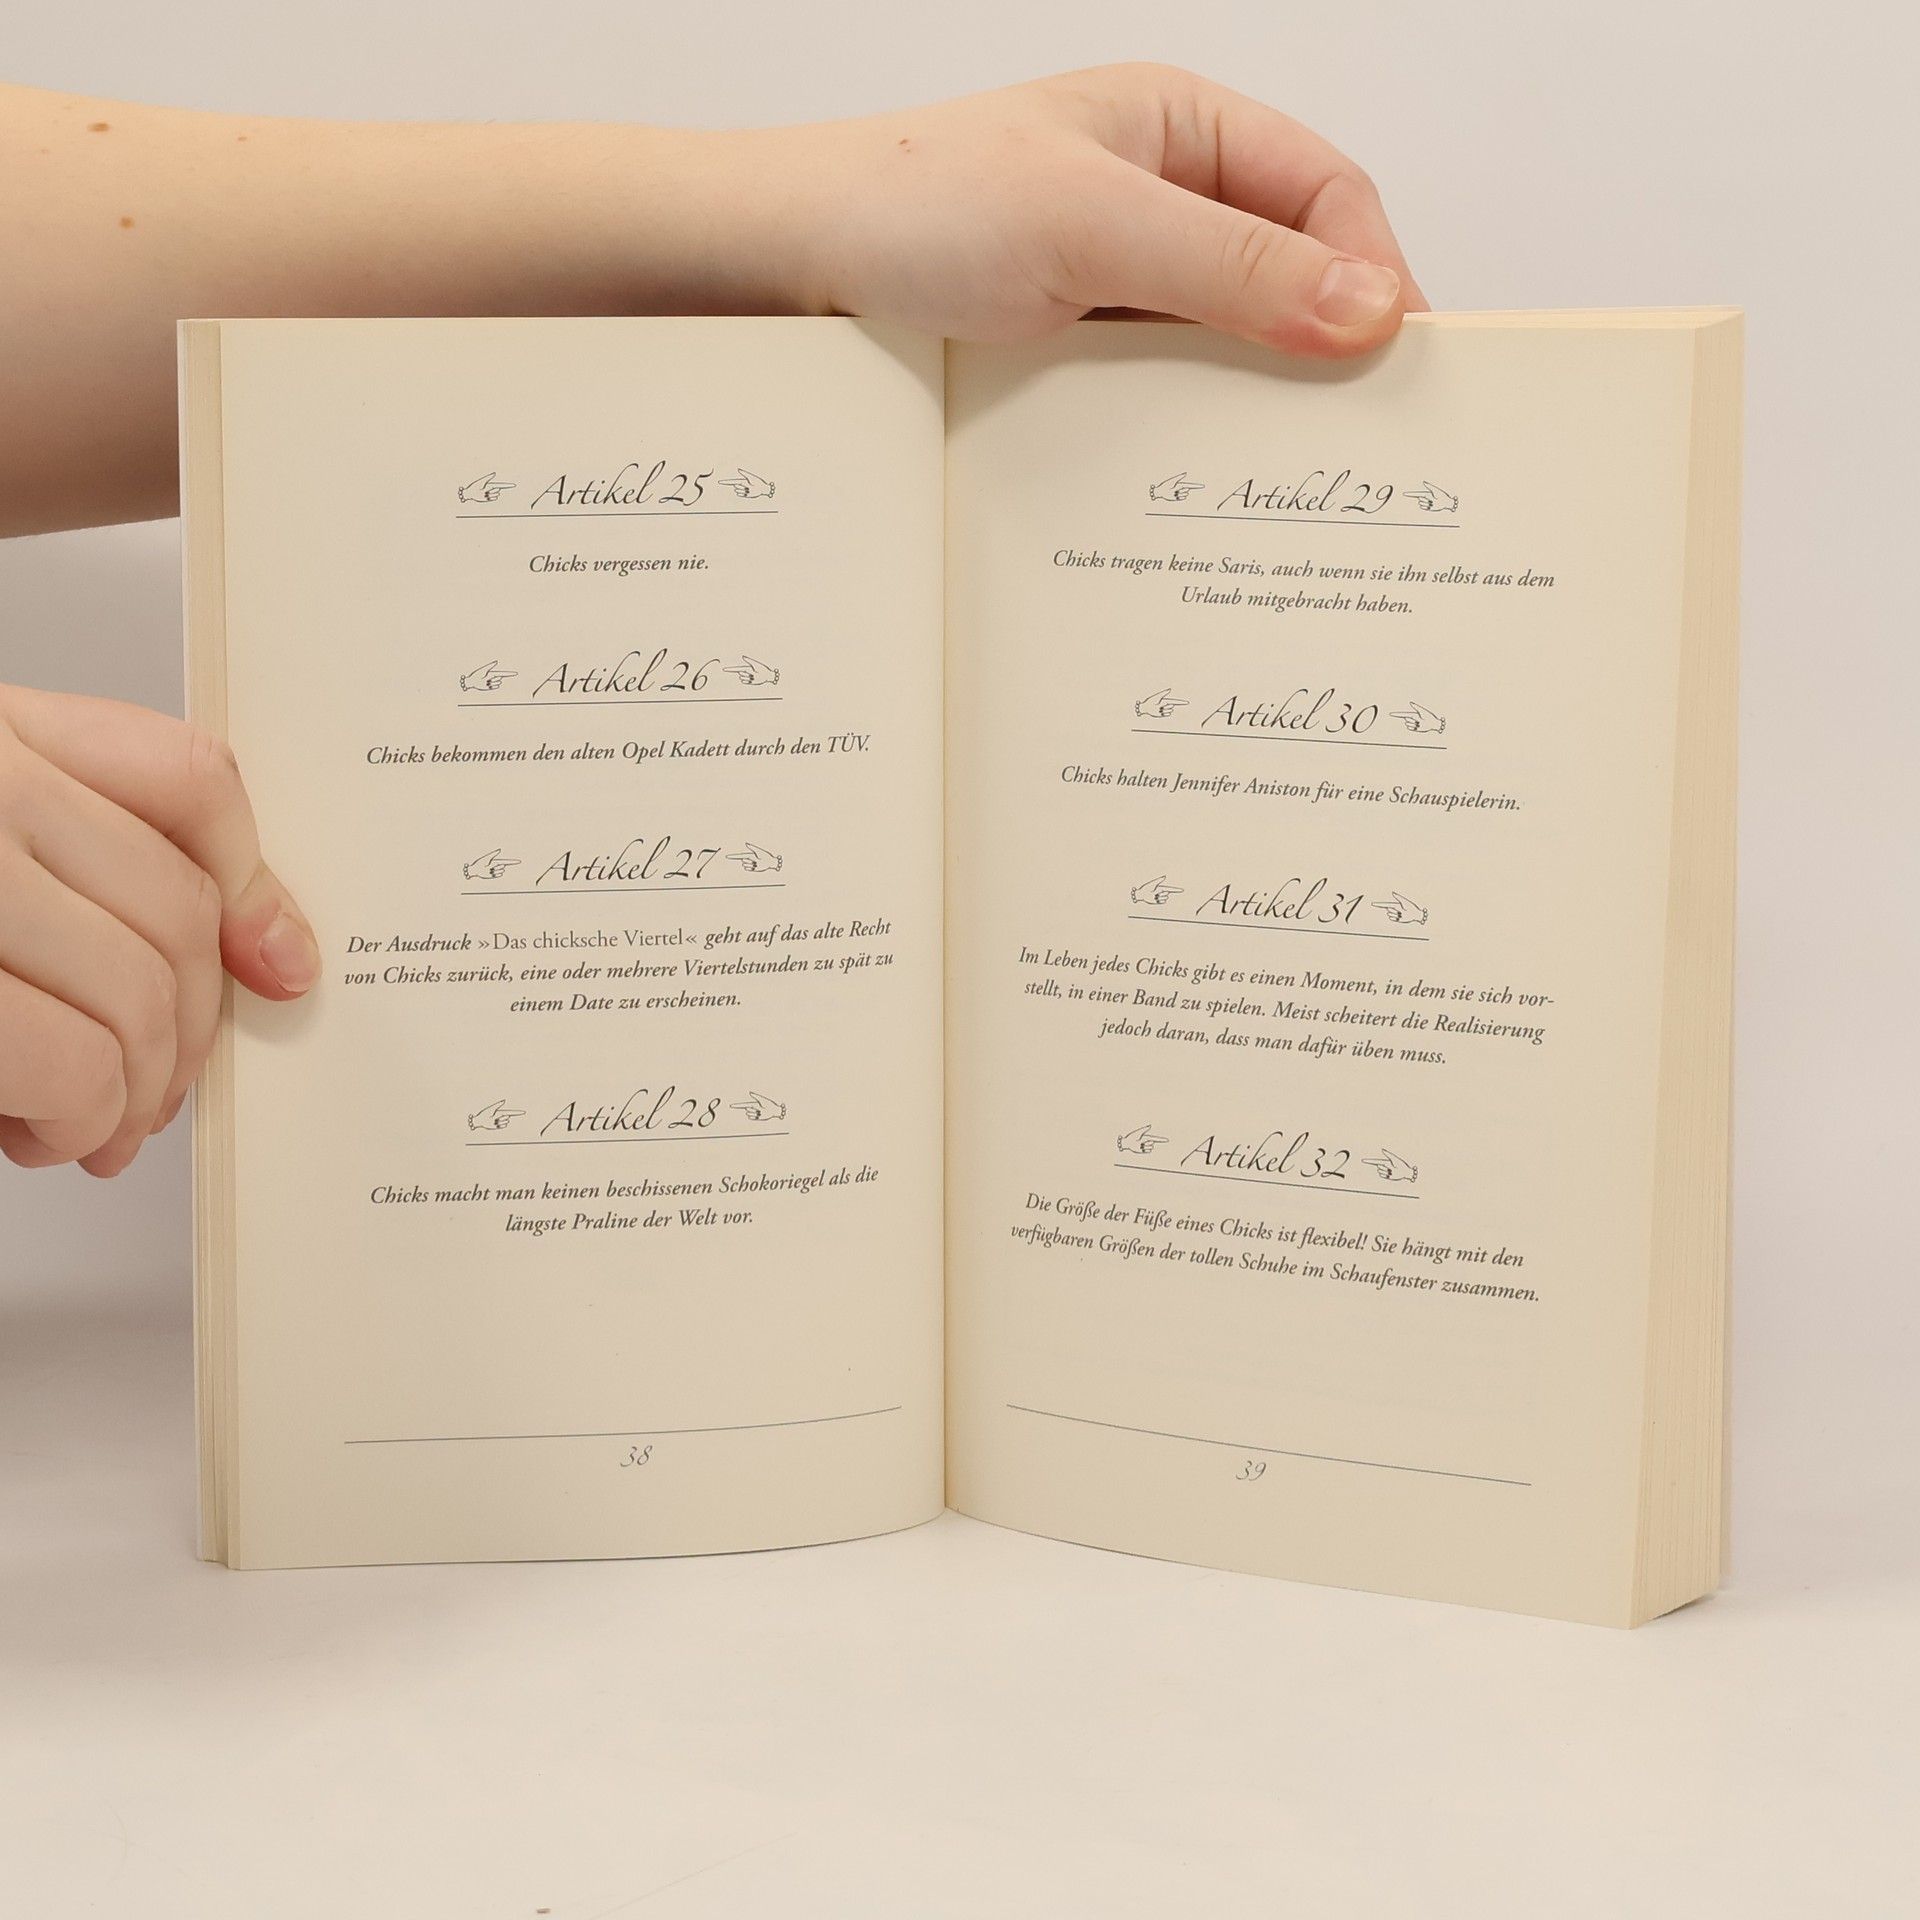 Artikel 25
Chicks vergessen nie.
Artikel 26
Chicks bekommen den alten Opel Kadett durch den TÜV.
Artikel 27
Der Ausdruck »Das chicksche Viertel« geht auf das alte Recht
von Chicks zurück, eine oder mehrere Viertelstunden zu spät zu
einem Date zu erscheinen.
Artikel 28
Chicks macht man keinen beschissenen Schokoriegel als die
längste Praline der Welt vor.
38
Artikel 29
Chicks tragen keine Saris, auch wenn sie ihn selbst aus dem
Urlaub mitgebracht haben.
Artikel 30
Chicks halten Jennifer Aniston für eine Schauspielerin.
Artikel 31
Im Leben jedes Chicks gibt es einen Moment, in dem sie sich vor-
stellt, in einer Band zu spielen. Meist scheitert die Realisierung
jedoch daran, dass man dafür üben muss.
Artikel 32
Die Größe der Füße eines Chicks ist flexibel! Sie hängt mit den
verfügbaren Größen der tollen Schuhe im Schaufenster zusammen.
39